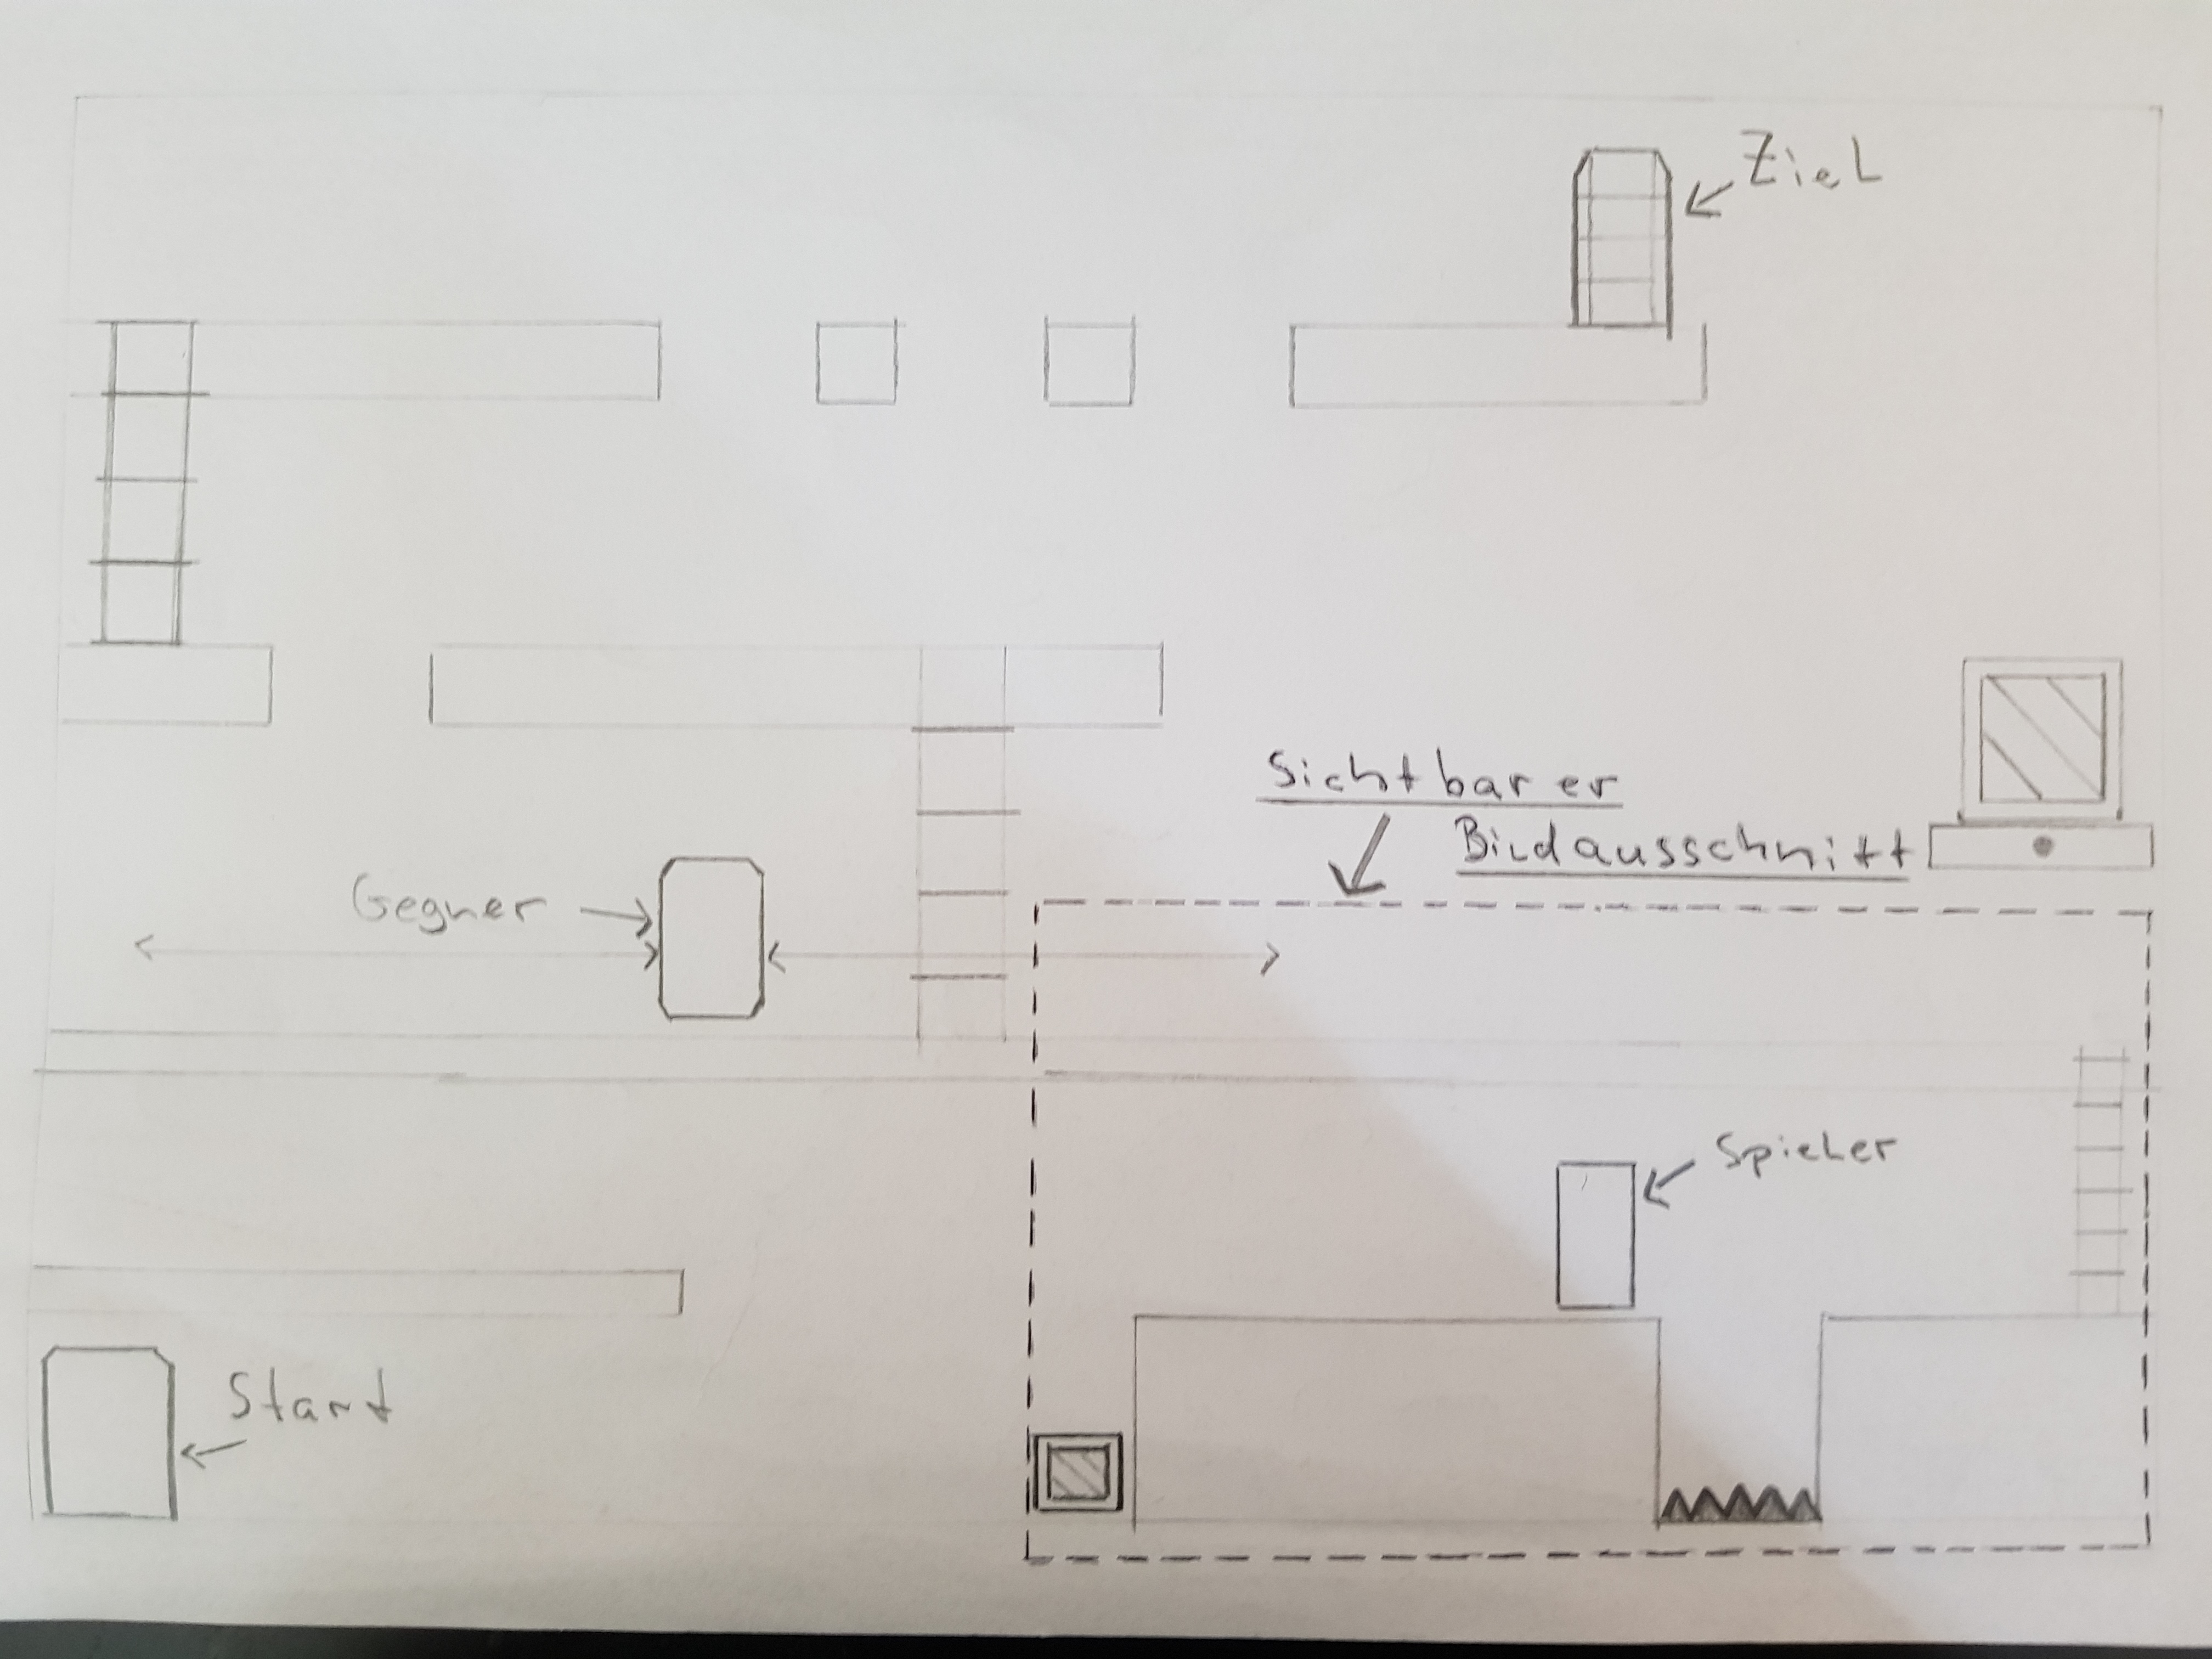 Ziel
Sichtbarer
Bildausschnitt
Gegner
Spieler
Start